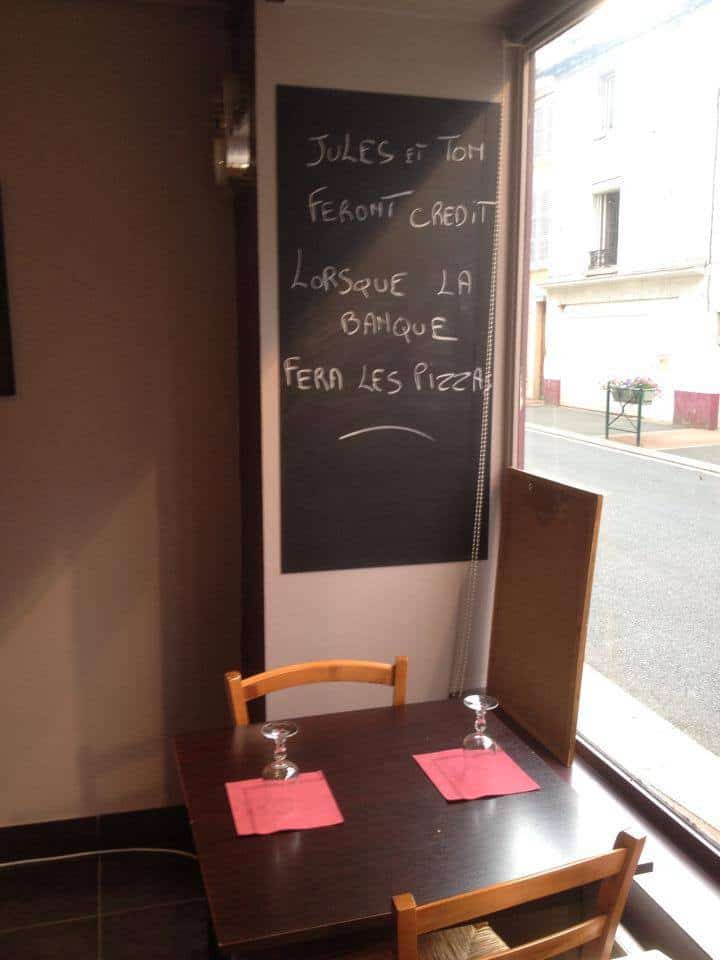 JULES ET TOM
FERONT CREDIT
LORSQUE LA
BANQUE
FERA LES PIZZAS